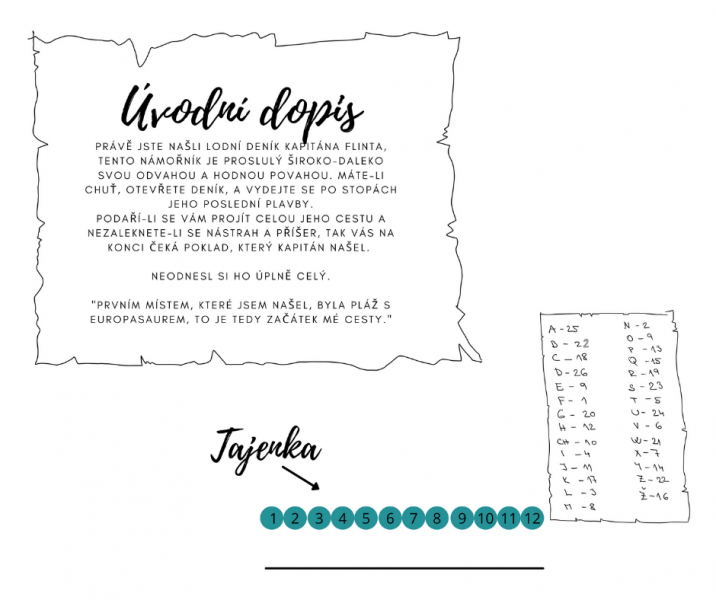 Úvodní dopis
PRÁVĚ JSTE NAŠLI LODNÍ DENÍK KAPITÁNA FLINTA,
TENTO NÁMOŘNÍK JE PROSLULÝ ŠIROKO-DALEKO
SVOU ODVAHOU A HODNOU POVAHOU. MÁTE-LI
CHUŤ, OTEVŘETE DENÍK, A VYDEJTE SE PO STOPÁCH
JEHO POSLEDNÍ PLAVBY.
PODAŘÍ-LI SE VÁM PROJÍT CELOU JEHO CESTU A
NEZALEKNETE-LI SE NÁSTRAH A PŘÍŠER, TAK VÁS NA
KONCI ČEKÁ POKLAD, KTERÝ KAPITÁN NAŠEL.
NEODNESL SI HO ÚPLNĚ CELÝ.
"PRVNÍM MÍSTEM, KTERÉ JSEM NAŠEL, BYLA PLÁŽ S
EUROPASAUREM, TO JE TEDY ZAČÁTEK MÉ CESTY."
A - 25
B - 22
C - 18
D - 26
E - 9
F - 1
G - 20
H - 12
CH - 10
I - 4
J - 11
K - 17
L - 3
M - 8
N - 2
O - 9
P - 13
Q - 15
R - 19
S - 23
T - 5
U - 24
V - 6
W - 21
X - 7
Y - 14
Z - 22
Ž - 16
Tajenka
1 2 3 4 5 6 7 8 9 10 11 12